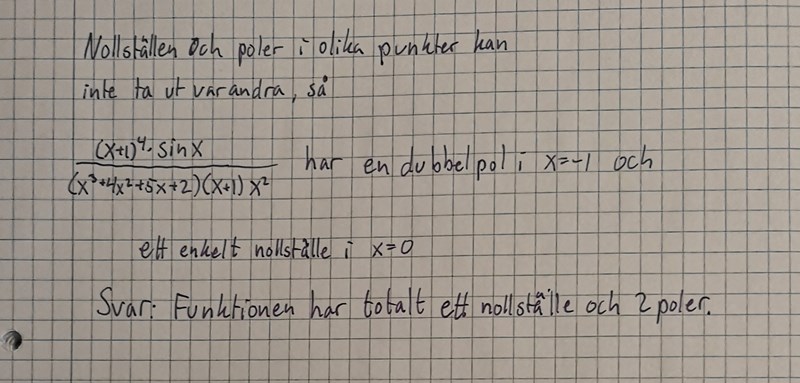 Nollställen och poler i olika punkter kan
inte ta ut varandra, så
(x+1)⁴· sin x
(x³+4x²+5x+2)(x+1) x² har en dubbelpol i x=-1 och
ett enkelt nollställe i x=0
Svar: Funktionen har totalt ett nollställe och 2 poler.